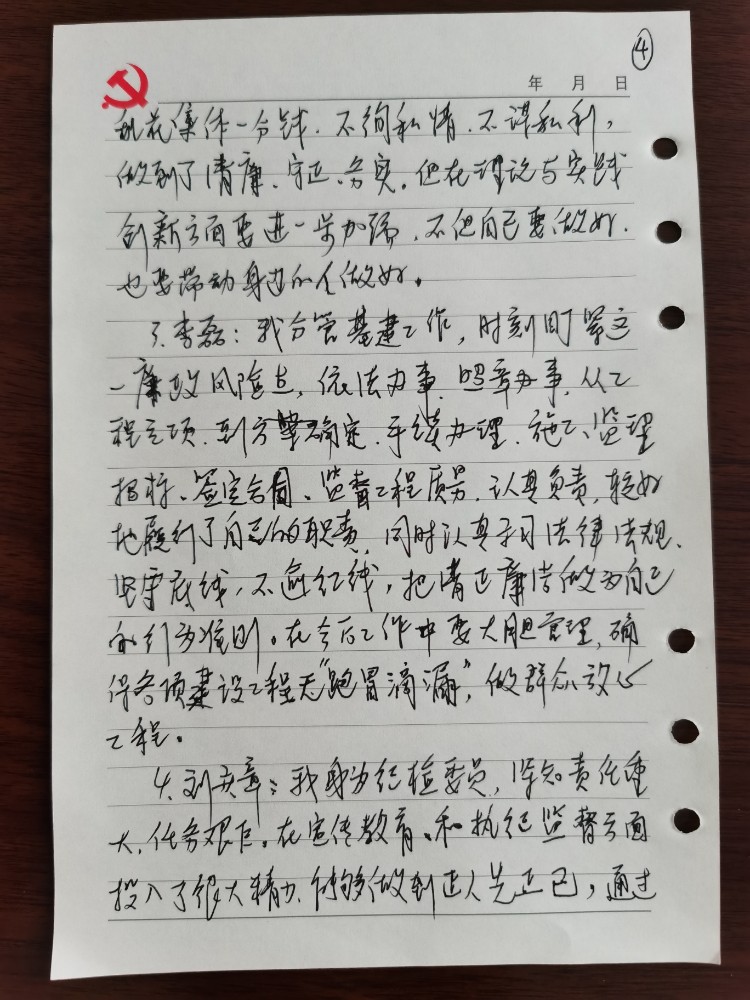 ④
年 月 日
乱花集体一分钱、不徇私情、不谋私利，
做到了清廉、守正、务实。但在理论与实践
创新方面要进一步加强，不但自己要做好，
也要带动身边的人做好。
3、李磊：我分管基建工作，时刻盯紧这
一廉政风险点，依法办事、照章办事，从工
程立项、到方案确定、手续办理、施工、监理
招标、签定合同、监督工程质量，认真负责，较好
地履行了自己的职责，同时认真学习法律法规、
坚守底线，不逾红线，把清正廉洁做为自己
的行为准则。在今后工作中要大胆管理，确
保各项建设工程无“跑冒滴漏”，做群众放心
工程。
4、刘英章：我身为纪检委员，深知责任重
大、任务艰巨。在宣传教育、和执纪监督方面
投入了很大精力、能够做到正人先正己，通过